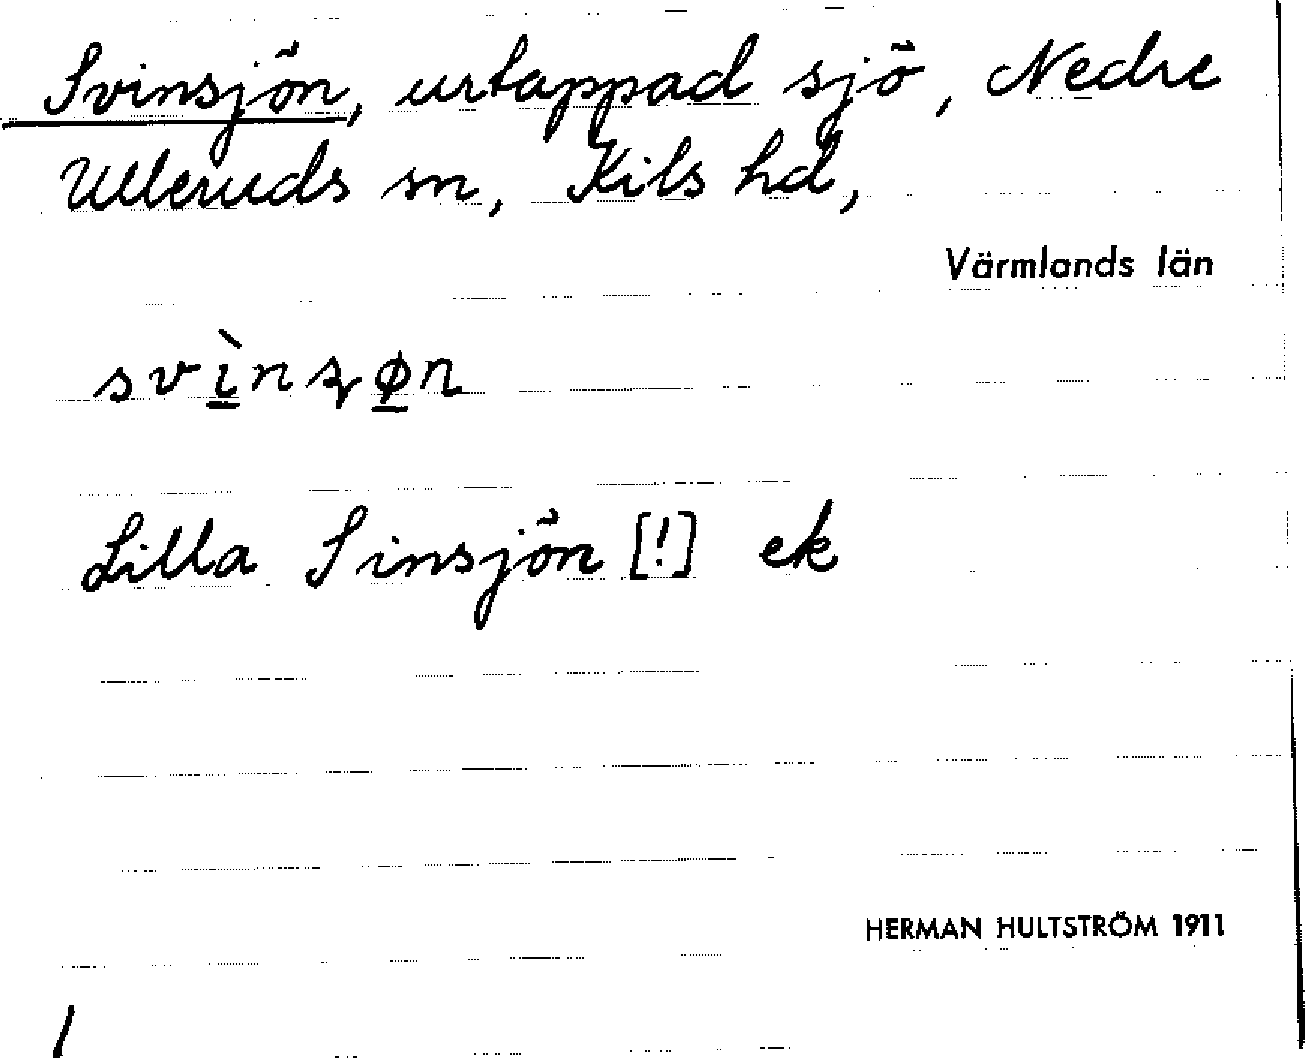 Svinsjön, urtappad sjö, Nedre
Ulleruds sn, Kils hd,
Värmlands län
Lilla Sinsjön [!] ek
HERMAN HULTSTRÖM 1911